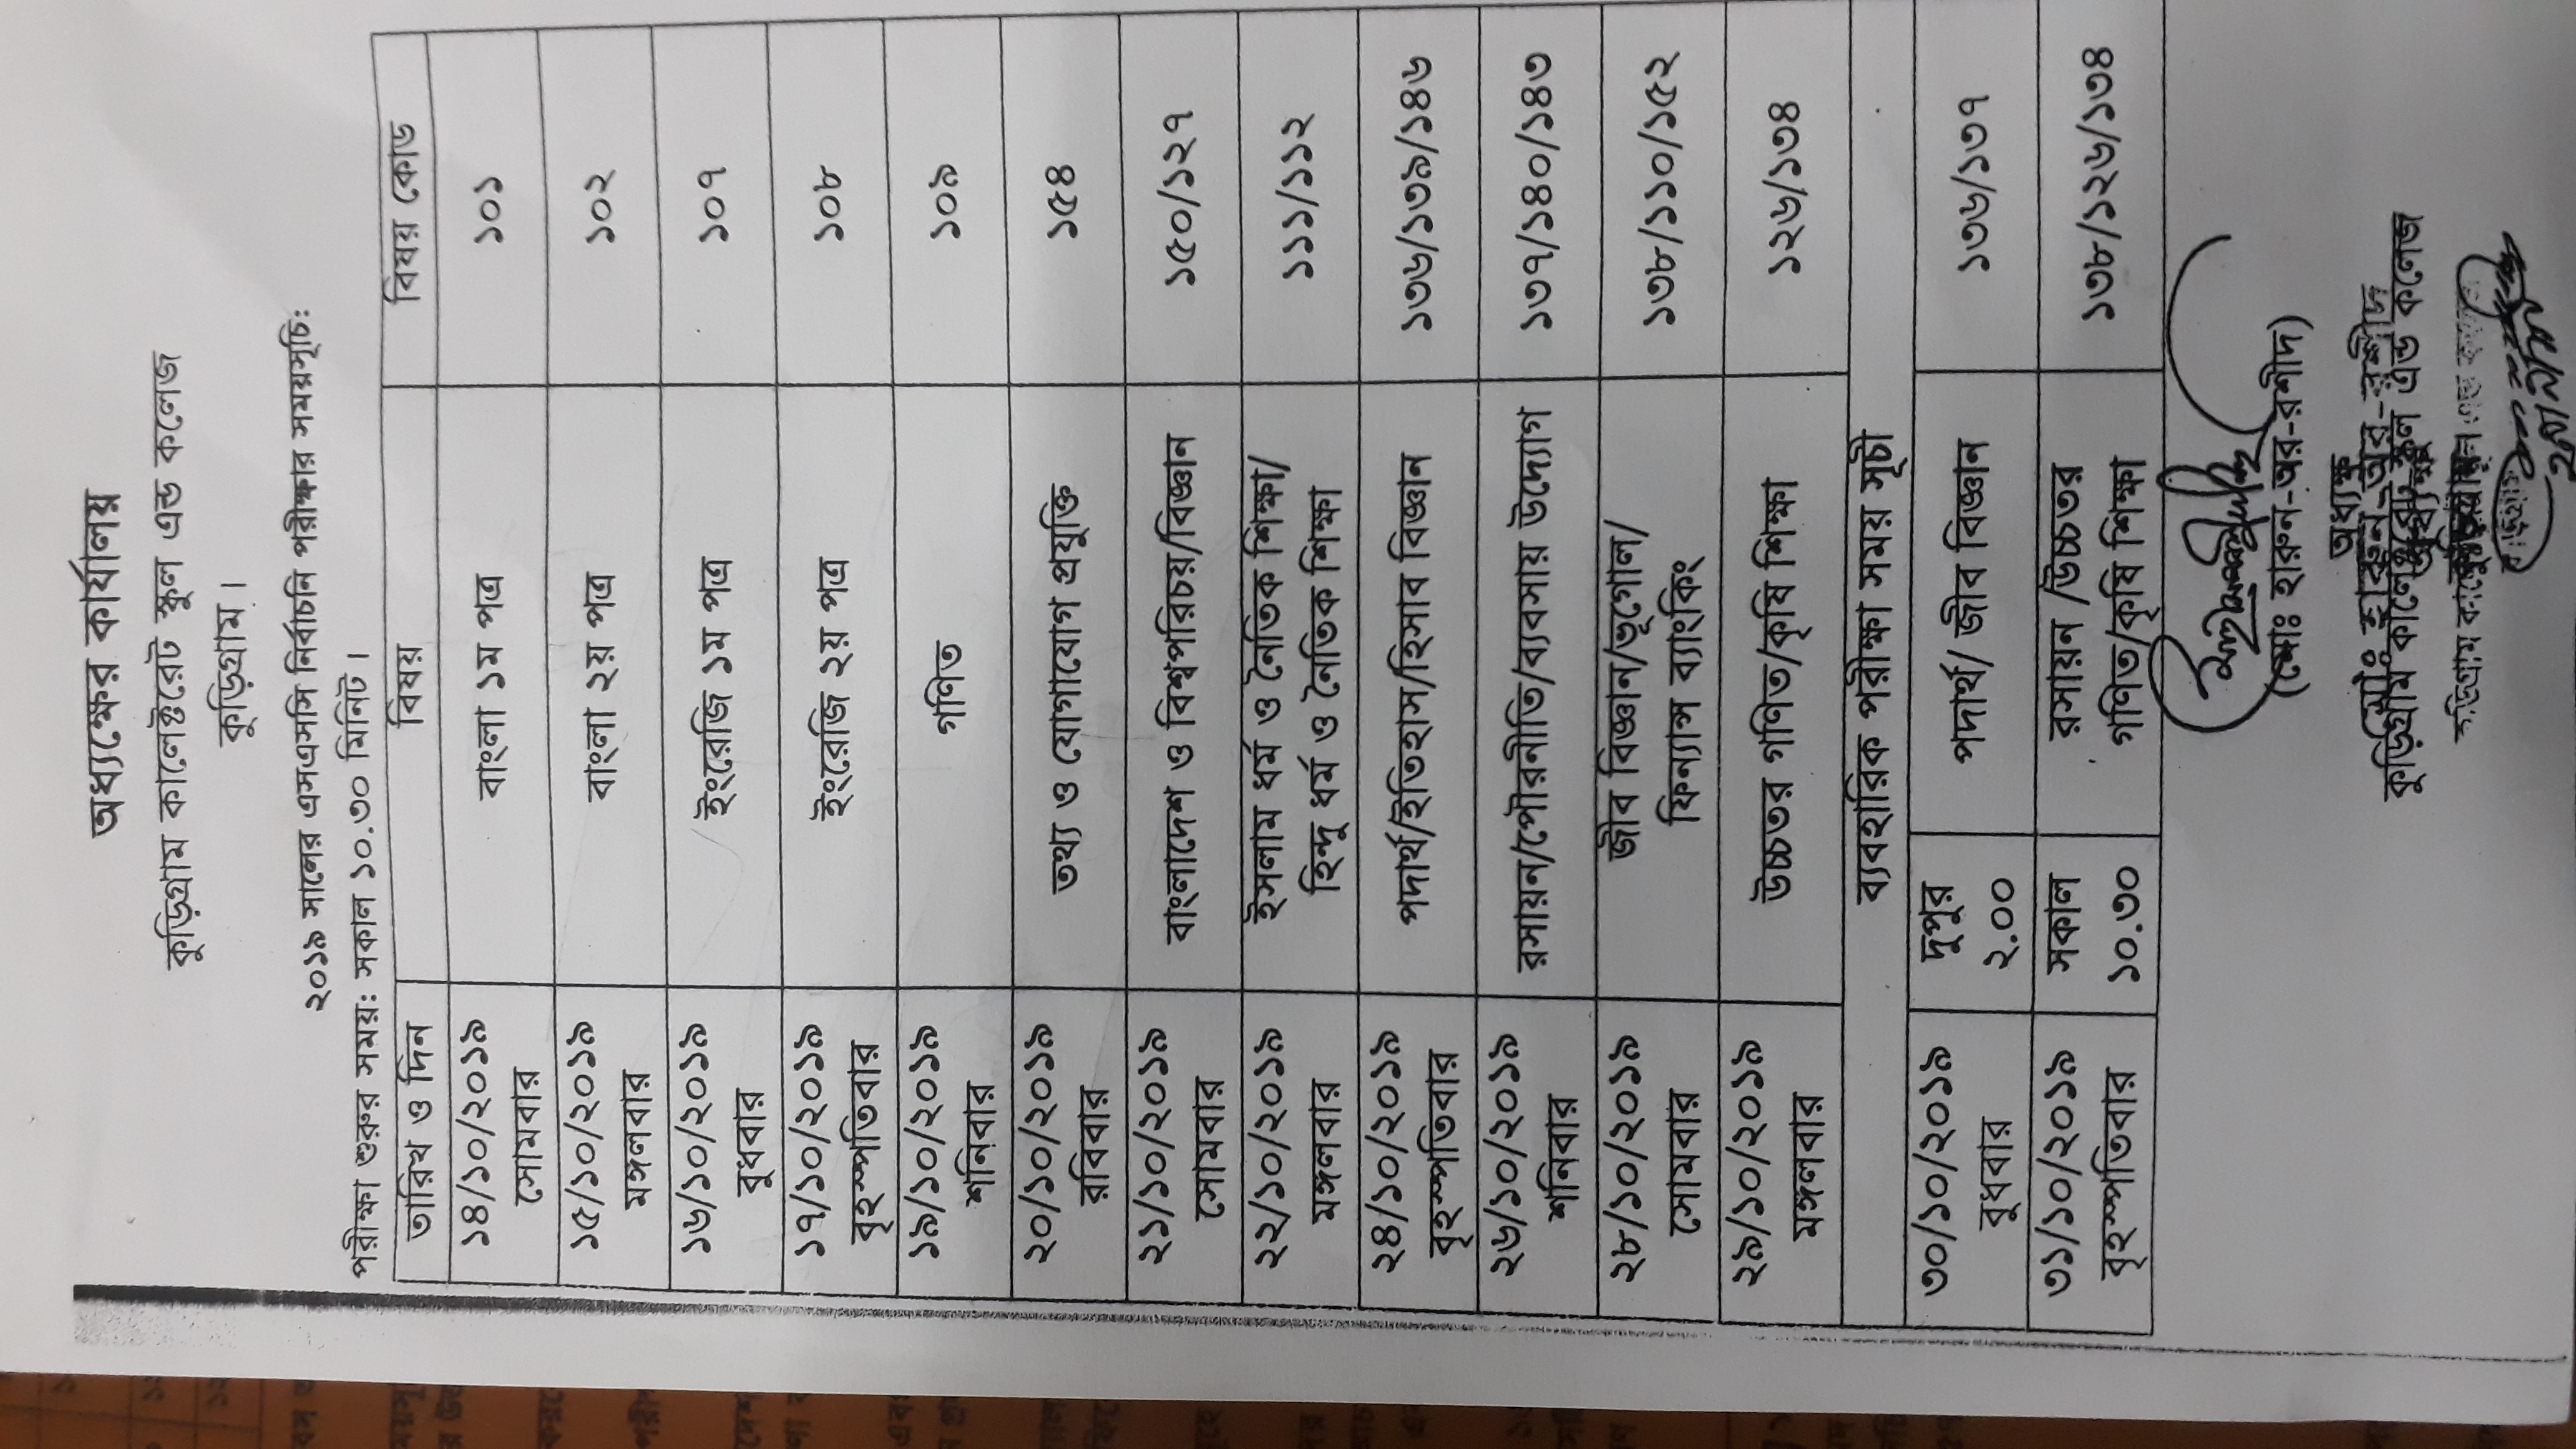 অধ্যক্ষের কার্যালয়
কুড়িগ্রাম কালেক্টরেট স্কুল এন্ড কলেজ
কুড়িগ্রাম।
২০১৯ সালের এসএসসি নির্বাচনি পরীক্ষার সময়সূচি:
পরীক্ষা শুরুর সময়: সকাল ১০.৩০ মিনিট।
তারিখ ও দিন বিষয় বিষয় কোড
১৪/১০/২০১৯ সোমবার বাংলা ১ম পত্র ১০১
১৫/১০/২০১৯ মঙ্গলবার বাংলা ২য় পত্র ১০২
১৬/১০/২০১৯ বুধবার ইংরেজি ১ম পত্র ১০৭
১৭/১০/২০১৯ বৃহস্পতিবার ইংরেজি ২য় পত্র ১০৮
১৯/১০/২০১৯ শনিবার গণিত ১০৯
২০/১০/২০১৯ রবিবার তথ্য ও যোগাযোগ প্রযুক্তি ১৫৪
২১/১০/২০১৯ সোমবার বাংলাদেশ ও বিশ্বপরিচয়/বিজ্ঞান ১৫০/১২৭
২২/১০/২০১৯ মঙ্গলবার ইসলাম ধর্ম ও নৈতিক শিক্ষা/ হিন্দু ধর্ম ও নৈতিক শিক্ষা ১১১/১১২
২৪/১০/২০১৯ বৃহস্পতিবার পদার্থ/ইতিহাস/হিসাব বিজ্ঞান ১৩৬/১৩৯/১৪৬
২৬/১০/২০১৯ শনিবার রসায়ন/পৌরনীতি/ব্যবসায় উদ্যোগ ১৩৭/১৪০/১৪৩
২৮/১০/২০১৯ সোমবার জীব বিজ্ঞান/ভূগোল/ ফিন্যান্স ব্যাংকিং ১৩৮/১১০/১৫২
২৯/১০/২০১৯ মঙ্গলবার উচ্চতর গণিত/কৃষি শিক্ষা ১২৬/১৩৪
ব্যবহারিক পরীক্ষা সময় সূচী
৩০/১০/২০১৯ বুধবার দুপুর ২.০০ পদার্থ/ জীব বিজ্ঞান ১৩৬/১৩৭
৩১/১০/২০১৯ বৃহস্পতিবার সকাল ১০.৩০ রসায়ন /উচ্চতর গণিত/কৃষি শিক্ষা ১৩৮/১২৬/১৩৪
(মোঃ হারুন-অর-রশীদ)
অধ্যক্ষ
মোঃ হারুন-অর-রশীদ
কুড়িগ্রাম কালেক্টরেট স্কুল এন্ড কলেজ